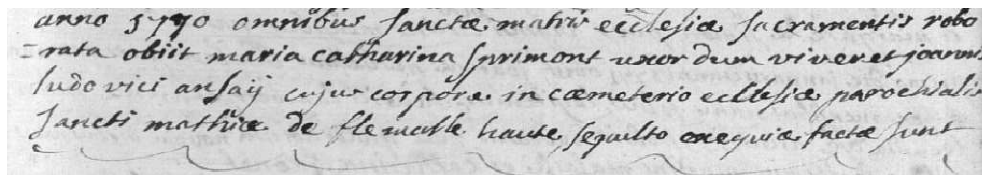 anno 1770 omnibus sanctæ matris ecclesiæ sacramentis robo
rata obiit maria catharina sprimont uxor dum viveret joannis
ludovici ansaÿ cujus corpore in cæmeterio ecclesiæ parochialis
sancti mathiæ de flemalle haute sepulto exequiæ factæ sunt